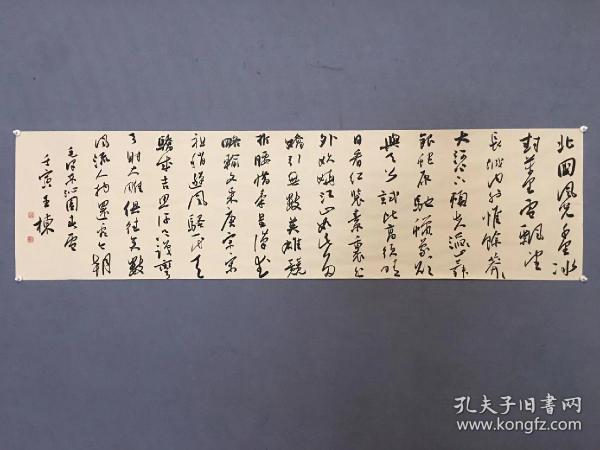 北国风光千里冰
封万里雪飘望
长城内外惟余莽
大河上下顿失滔山舞
银蛇原驰蜡象欲
与天公试比高须晴
日看红装素裹分
外妖娆江山如此多
娇引无数英雄竞
折腰惜秦皇汉武
略输文采唐宗宋
祖稍逊风骚一代天
骄成吉思汗只识弯
弓射大雕俱往矣数
风流人物还看今朝
毛泽东沁园春雪
壬寅王栋
孔夫子旧书网
www.kongfz.com